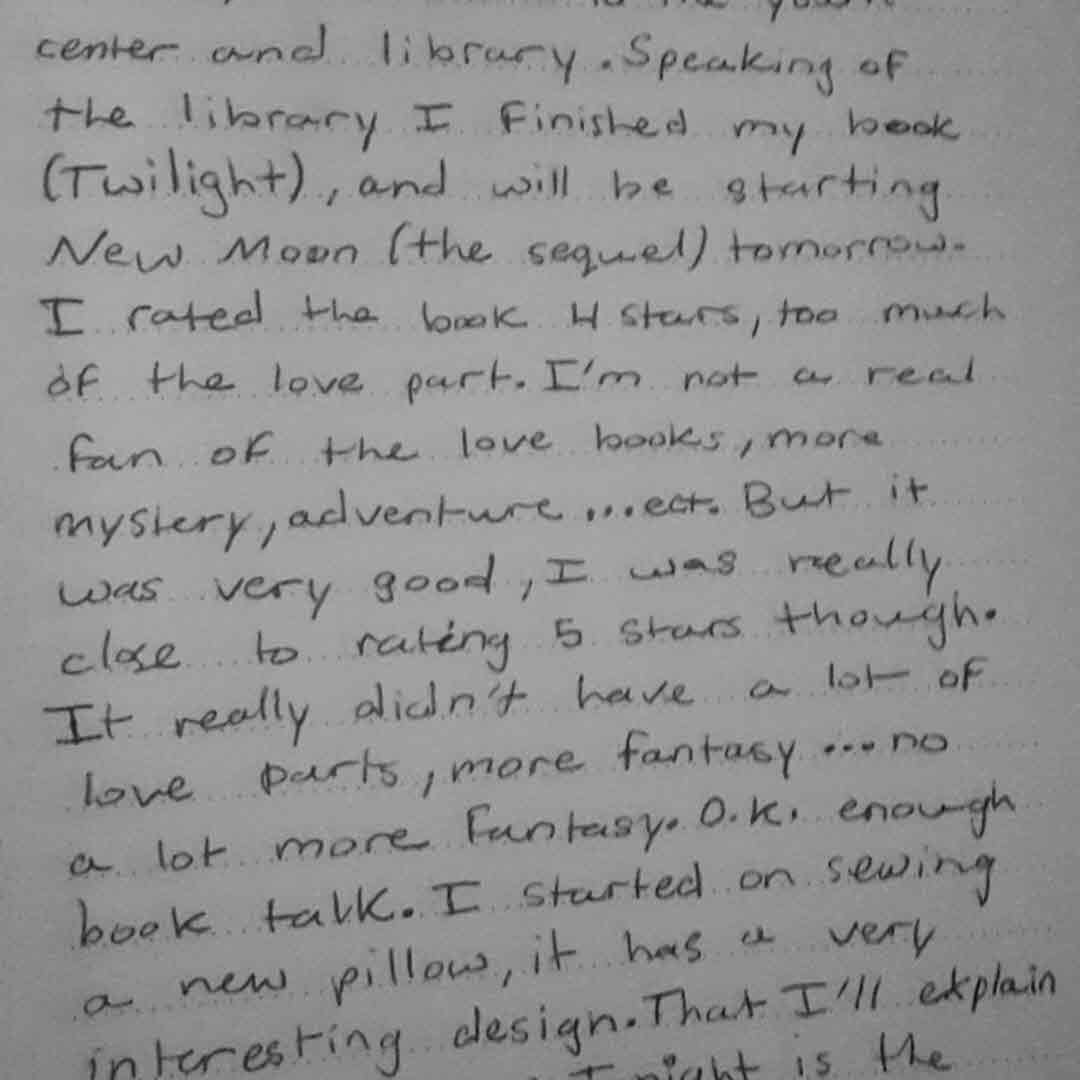 center and library. Speaking of
the library I finished my book
(Twilight), and will be starting
New Moon (the sequel) tomorrow.
I rated the book 4 stars, too much
of the love part. I'm not a real
fan of the love books, more
mystery, adventure ...ect. But it
was very good, I was really
close to rating 5 stars though.
It really didn't have a lot of
love parts, more fantasy ... no
a lot more fantasy. O.k. enough
book talk. I started on sewing
a new pillow, it has a very
interesting design. That I'll explain
night is the